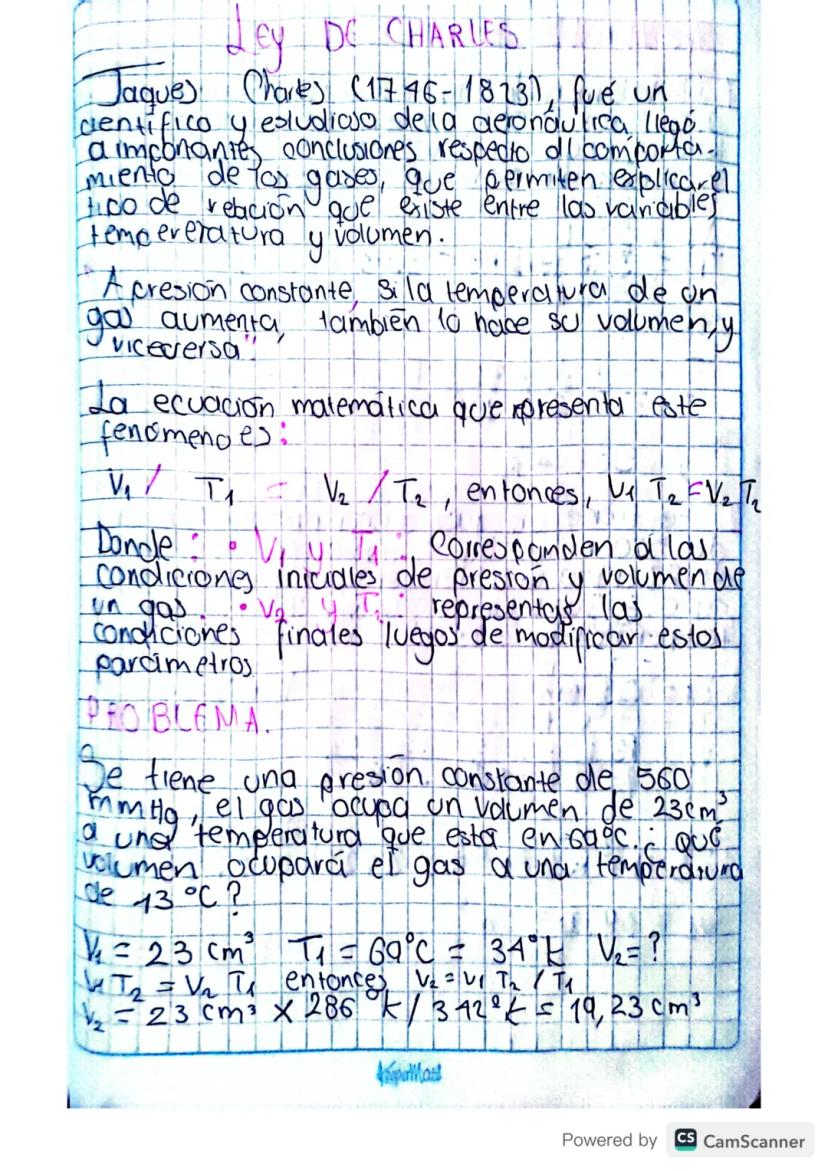 Ley DE CHARLES
Jaques Charles (1746-1823), fué un
científico y estudioso de la aeronáutica llegó
a importantes conclusiones respecto al comporta-
miento de los gases, que permiten explicar el
tico de relación que existe entre las variables
tempereratura y volumen.
"A presión constante, si la temperatura de un
gas aumenta, también lo hace su volumen, y
viceversa".
La ecuación matemática que representa este
fenómeno es:
V₁ / T₁ = V₂ / T₂, entonces, V₁ T₂ = V₂ T₂
Donde: • V₁ y T₁: Corresponden a las
condiciones iniciales de presión y volumen de
un gas. • V₂ y T₂: representas las
condiciones finales luegos de modificar estos
parámetros
PROBLEMA.
Se tiene una presión constante de 560
mmHg, el gas ocupa un volumen de 23cm³
a una temperatura que está en 69°C. ¿ qué
volumen ocupará el gas a una temperatura
de 13 °C?
V₁ = 23 cm³ T₁ = 69°C = 34°k V₂ = ?
V₁ T₂ = V₂ T₁ entonces V₂ = V₁ T₂ / T₁
V₂ = 23 cm³ X 286 °k / 342°k = 19,23 cm³
Powered by CS CamScanner